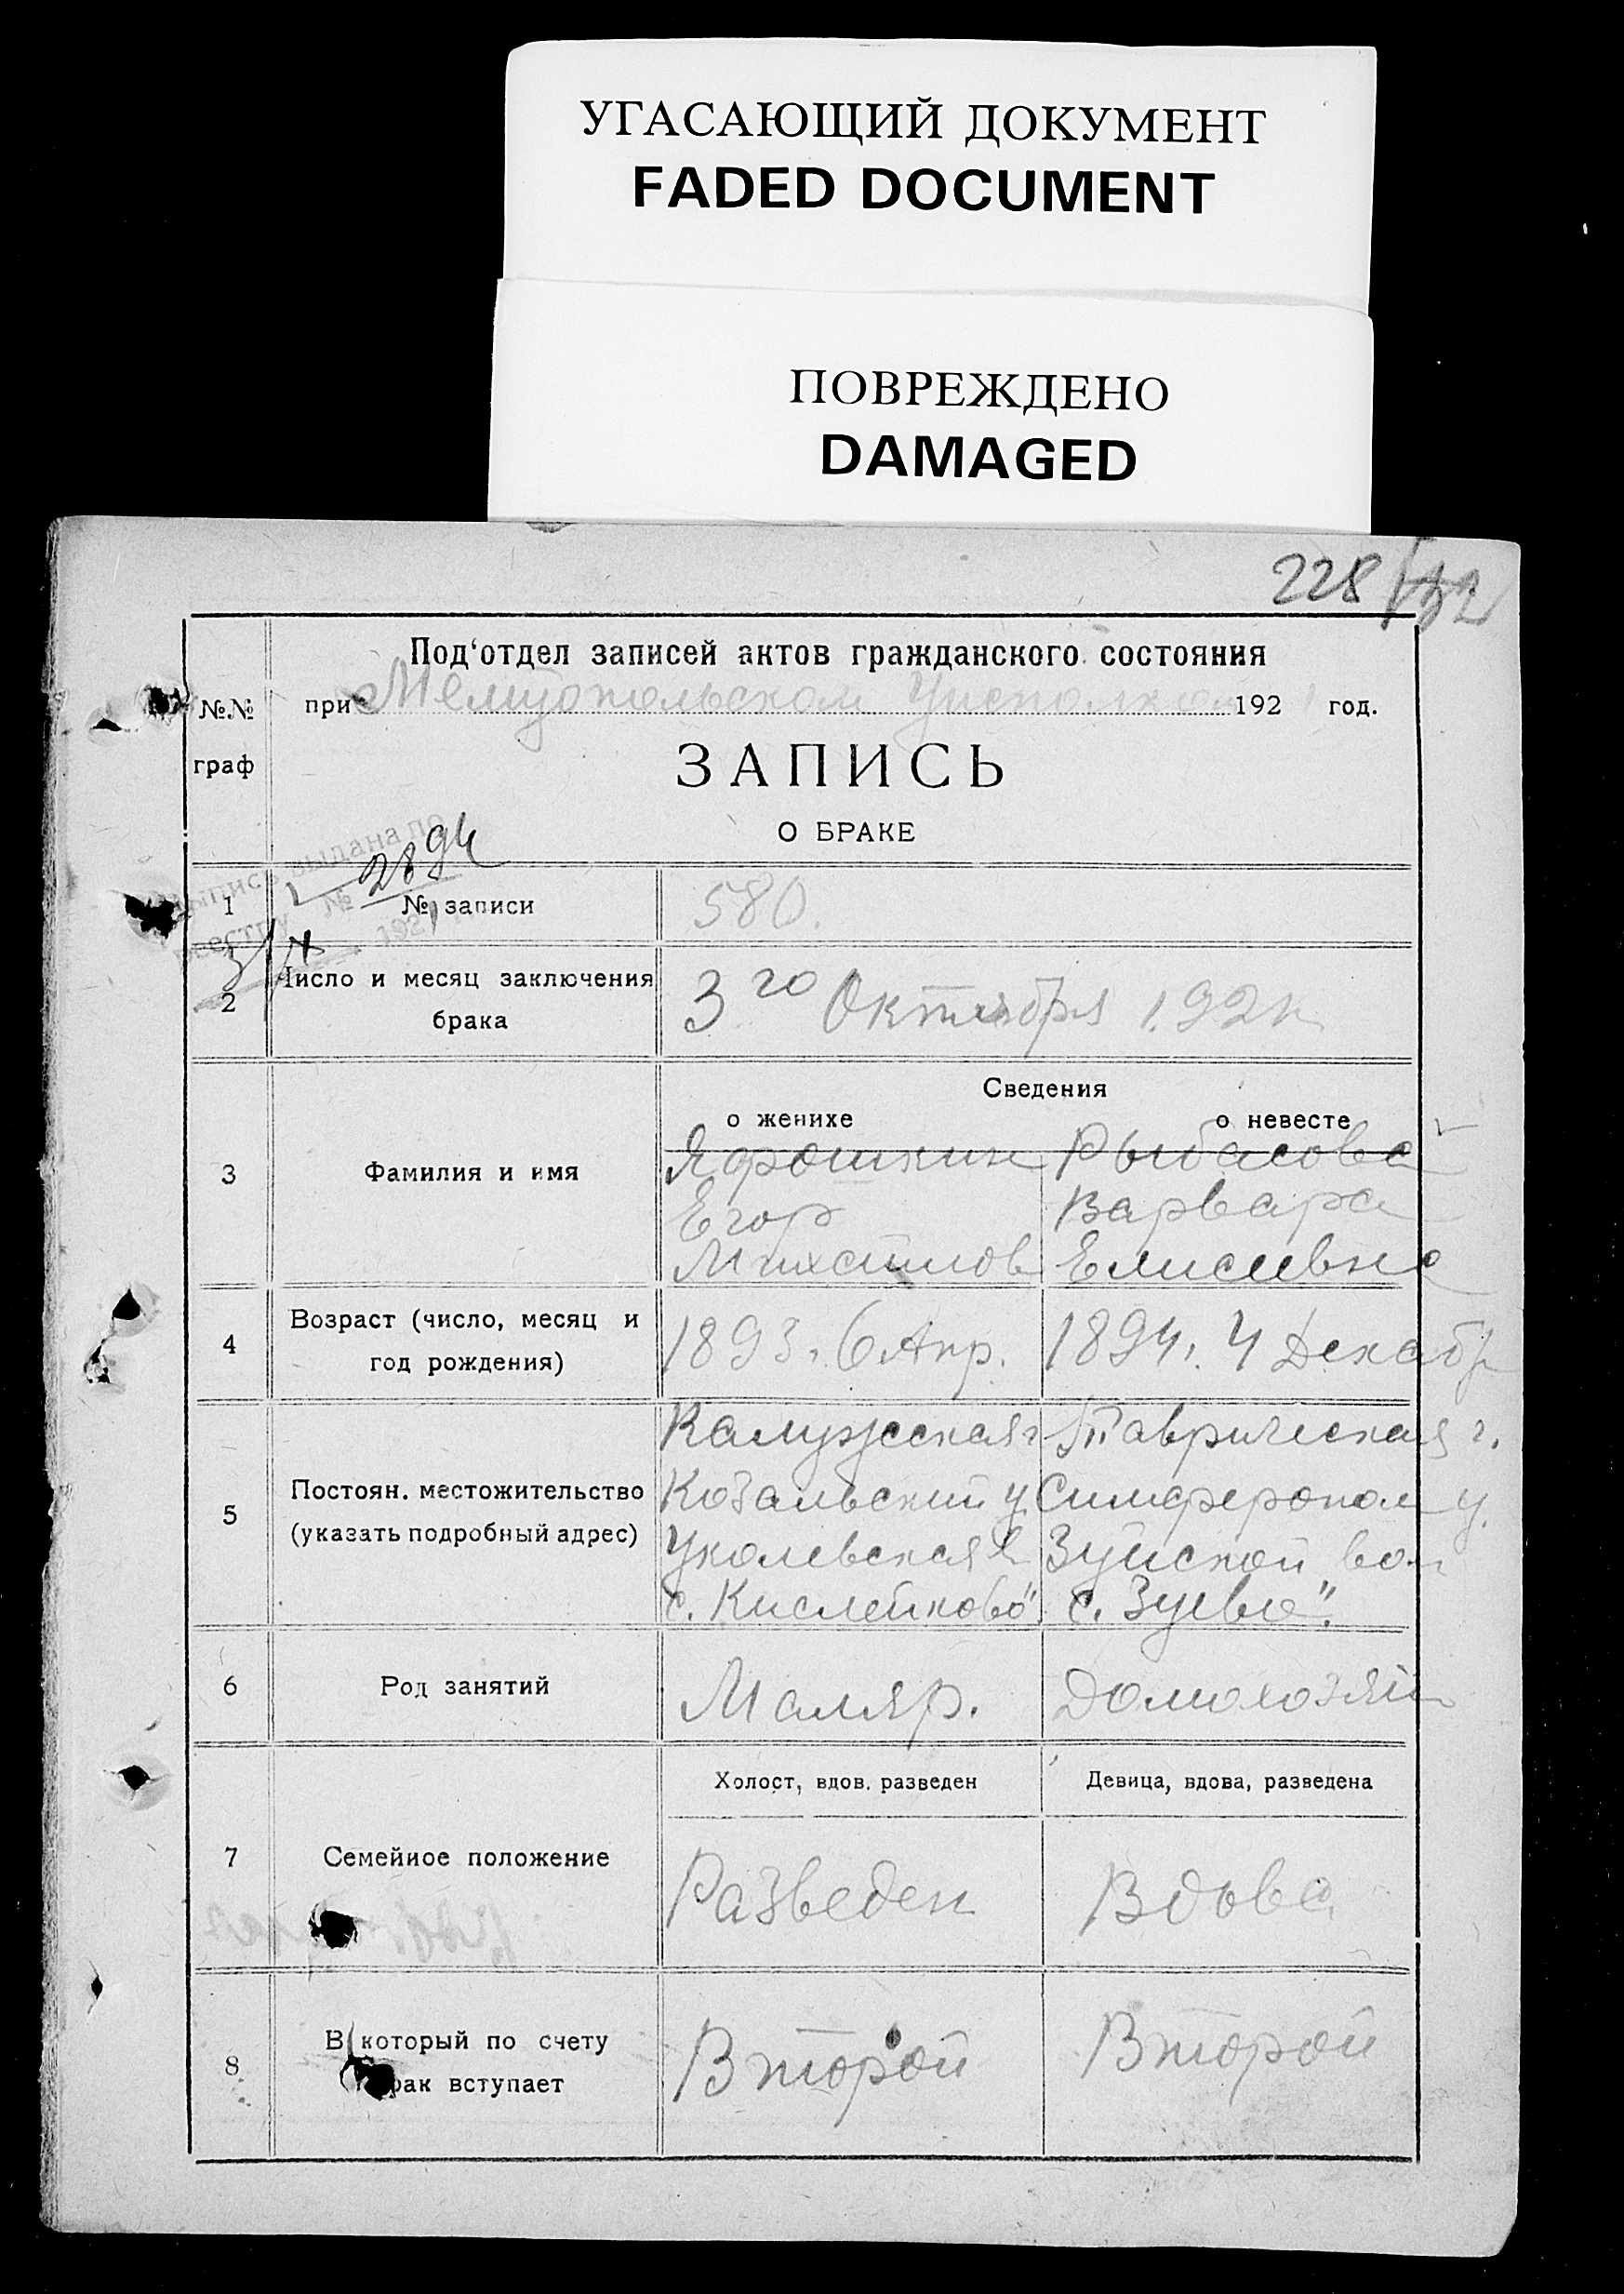 УГАСАЮЩИЙ ДОКУМЕНТ
FADED DOCUMENT
ПОВРЕЖДЕНО
DAMAGED
228
№№ граф
Под‘отдел записей актов гражданского состояния
при Мелитопольском Уисполком 192 год.
ЗАПИСЬ
О БРАКЕ
выпись выдана по
реестру № 2894
192
1 № записи 580.
2 Число и месяц заключения брака 3го Октября 192
Сведения
о женихе о невесте
3 Фамилия и имя
Ярошкин Рыбасова
Егор Варвара
Михаилов Елисеевна
4 Возраст (число, месяц и год рождения) 1893. 6 Апр. 1894. 4 Декабр
5 Постоян. местожительство (указать подробный адрес)
Калужская г Таврическая г.
Козельский у Симферопол у.
в Зуйской вол
с. Кислейково" с. Зуевы".
6 Род занятий Маляр. Домохозяй
Холост, вдов. разведен Девица, вдова, разведена
7 Семейное положение Разведен Вдова
8 В который по счету брак вступает Второй Второй